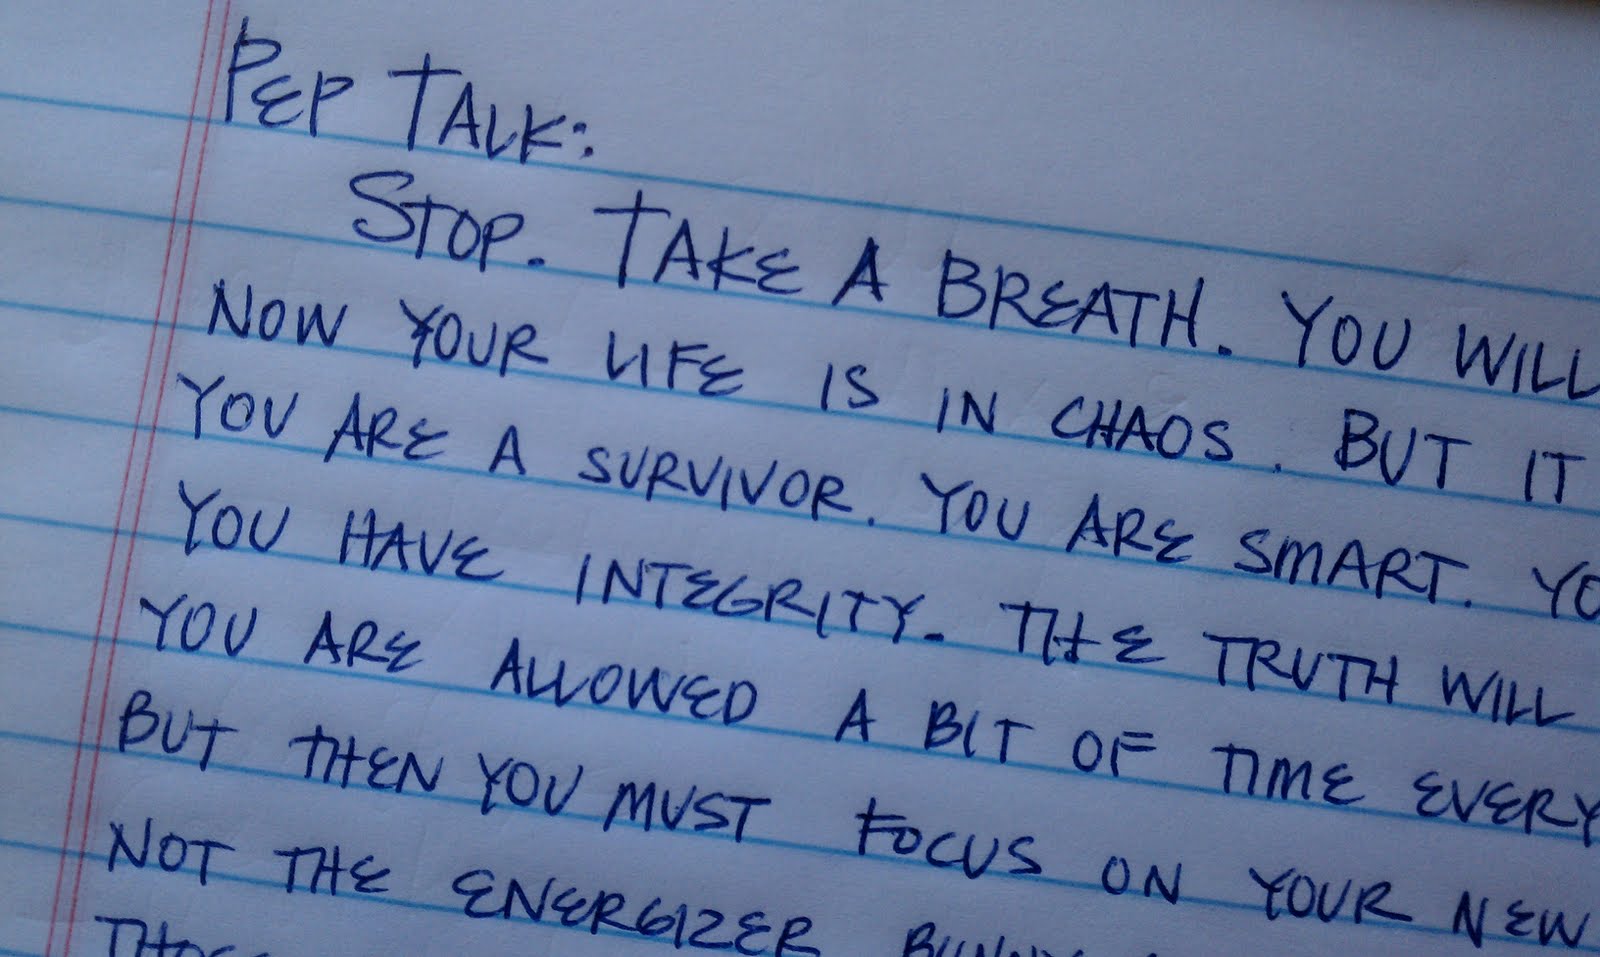 PEP TALK:
STOP. TAKE A BREATH. YOU WILL
NOW YOUR LIFE IS IN CHAOS. BUT IT
YOU ARE A SURVIVOR. YOU ARE SMART. YO
YOU HAVE INTEGRITY. THE TRUTH WILL
YOU ARE ALLOWED A BIT OF TIME EVERY
BUT THEN YOU MUST FOCUS ON YOUR NEW
NOT THE ENERGIZER BUNNY